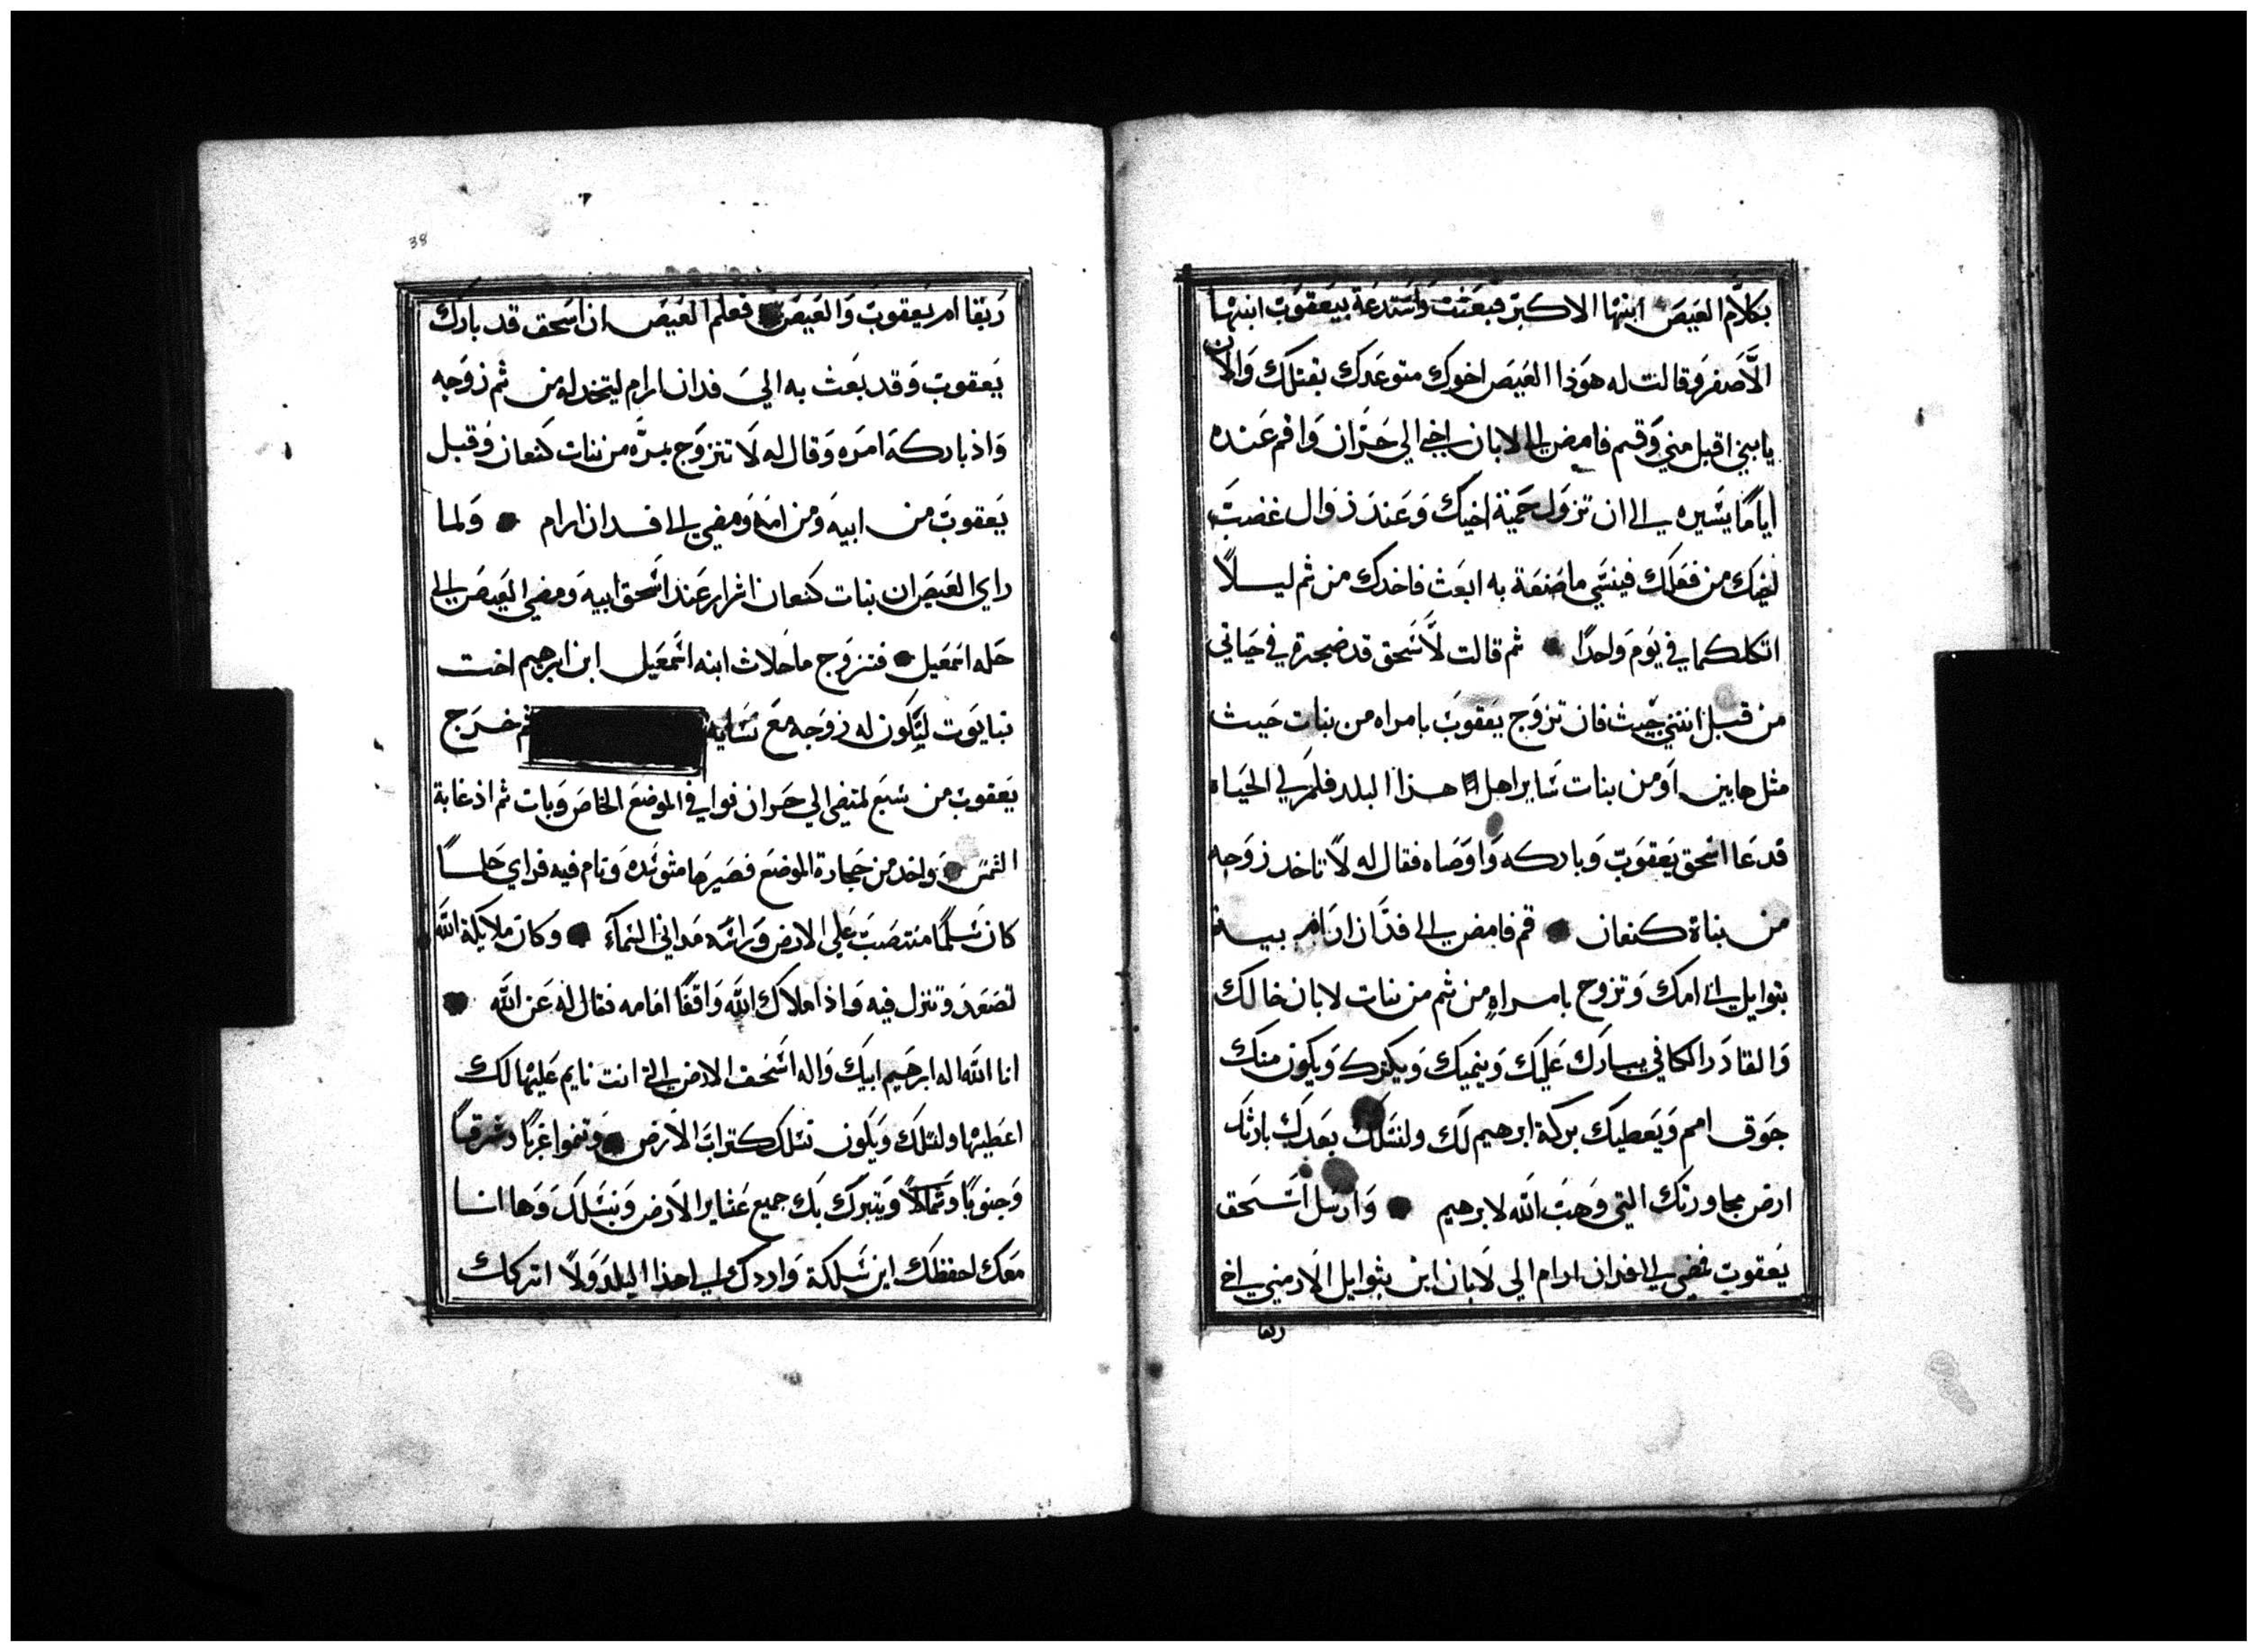 بكلام العيص ابنها الاكبر فبعثت واستدعة بيعقوب ابنها
الاصغر وقالت له هوذا العيص اخوك متوعدك بقتلك والان
يابني اقبل مني وقم فامض الى لابان اخي الي حران واقم عنده
اياما يسيره الى ان تزول حمية اخيك وعند زوال غضب
اخيك من فعلك فينسي ما صنعة به ابعث فاخدك من ثم ليلا
اتكلكما في يوم واحدا ثم قالت لاسحق قد ضجرة في حياتي
من قبل ابنتي حيث فان تزوج يعقوب بامراه من بنات حيث
مثل هاين او من بنات ساير اهل هذا البلد فلم لي الحياه
فدعا اسحق يعقوب وباركه واوصاه فقال له لا تاخد زوجه
من بناة كنعان قم فامض الى فدان ارام بيت
بتوايل ابي امك وتزوج بامراه من ثم من بنات لابان خالك
والقادر الكافي يبارك عليك وينميك ويكثرك ويكون منك
جوق امم ويعطيك بركة ابرهيم لك ولنسلك بعدك بارثك
ارض مجاورتك التي وهب الله لابرهيم وارسل اسحق
يعقوب فمضي الى فدان ارام الي لابان ابن بتوايل الارمني اخي
ربقا
38
ربقا ام يعقوب والعيص فعلم العيص ان اسحق قد بارك
يعقوب وقد بعث به الي فدان ارام ليتخد له من ثم زوجه
واذ باركه امره وقال له لا تتزوج بمره من بنات كنعان وقبل
يعقوب من ابيه ومن امه ومضي الى فدان ارام ولما
راي العيص ان بنات كنعان اشرار عند اسحق ابيه ومضي العيص الى
حله اسمعيل فتزوج ماحلاث ابنه اسمعيل ابن ابرهيم اخت
نبايوت ليكون له زوجه مع نسايه ثم خرج
يعقوب من سبع ليمضي الي حران فوافي الموضع الخاص وبات ثم اذ غابة
الشمس واخد من حجارة الموضع فصيرها متوسده ونام فيه فراي حلما
كان سلما منتصب علي الارض وراسه مداني السماء وكان ملايكة الله
تصعد وتنزل فيه واذا ملاك الله واقفا امامه فقال له عن الله
انا الله اله ابرهيم ابيك واله اسحق الارض التي انت نايم عليها لك
اعطيها ولنسلك ويكون نسلك كتراب الارض وتنموا غربا وشرقا
وجنوبا وشمالا ويتبرك بك جميع عشاير الارض وبنسلك وها انا
معك احفظك اين سلكة واردك الى هذا البلد ولا اتركك